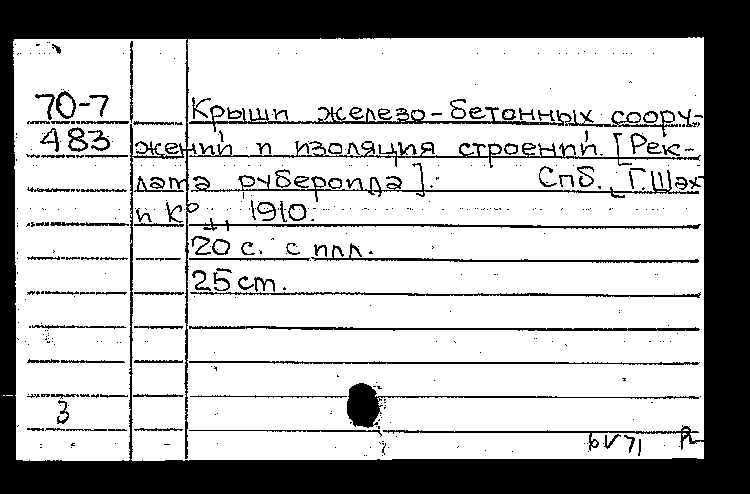 70-7 Крыши железо-бетонных соору-
483 жений и изоляция строений. [Рек-
лама рубероида]. Спб., Г. Шах
и К°, 1910.
20 с. с илл.
25 см.
3
6 V 71